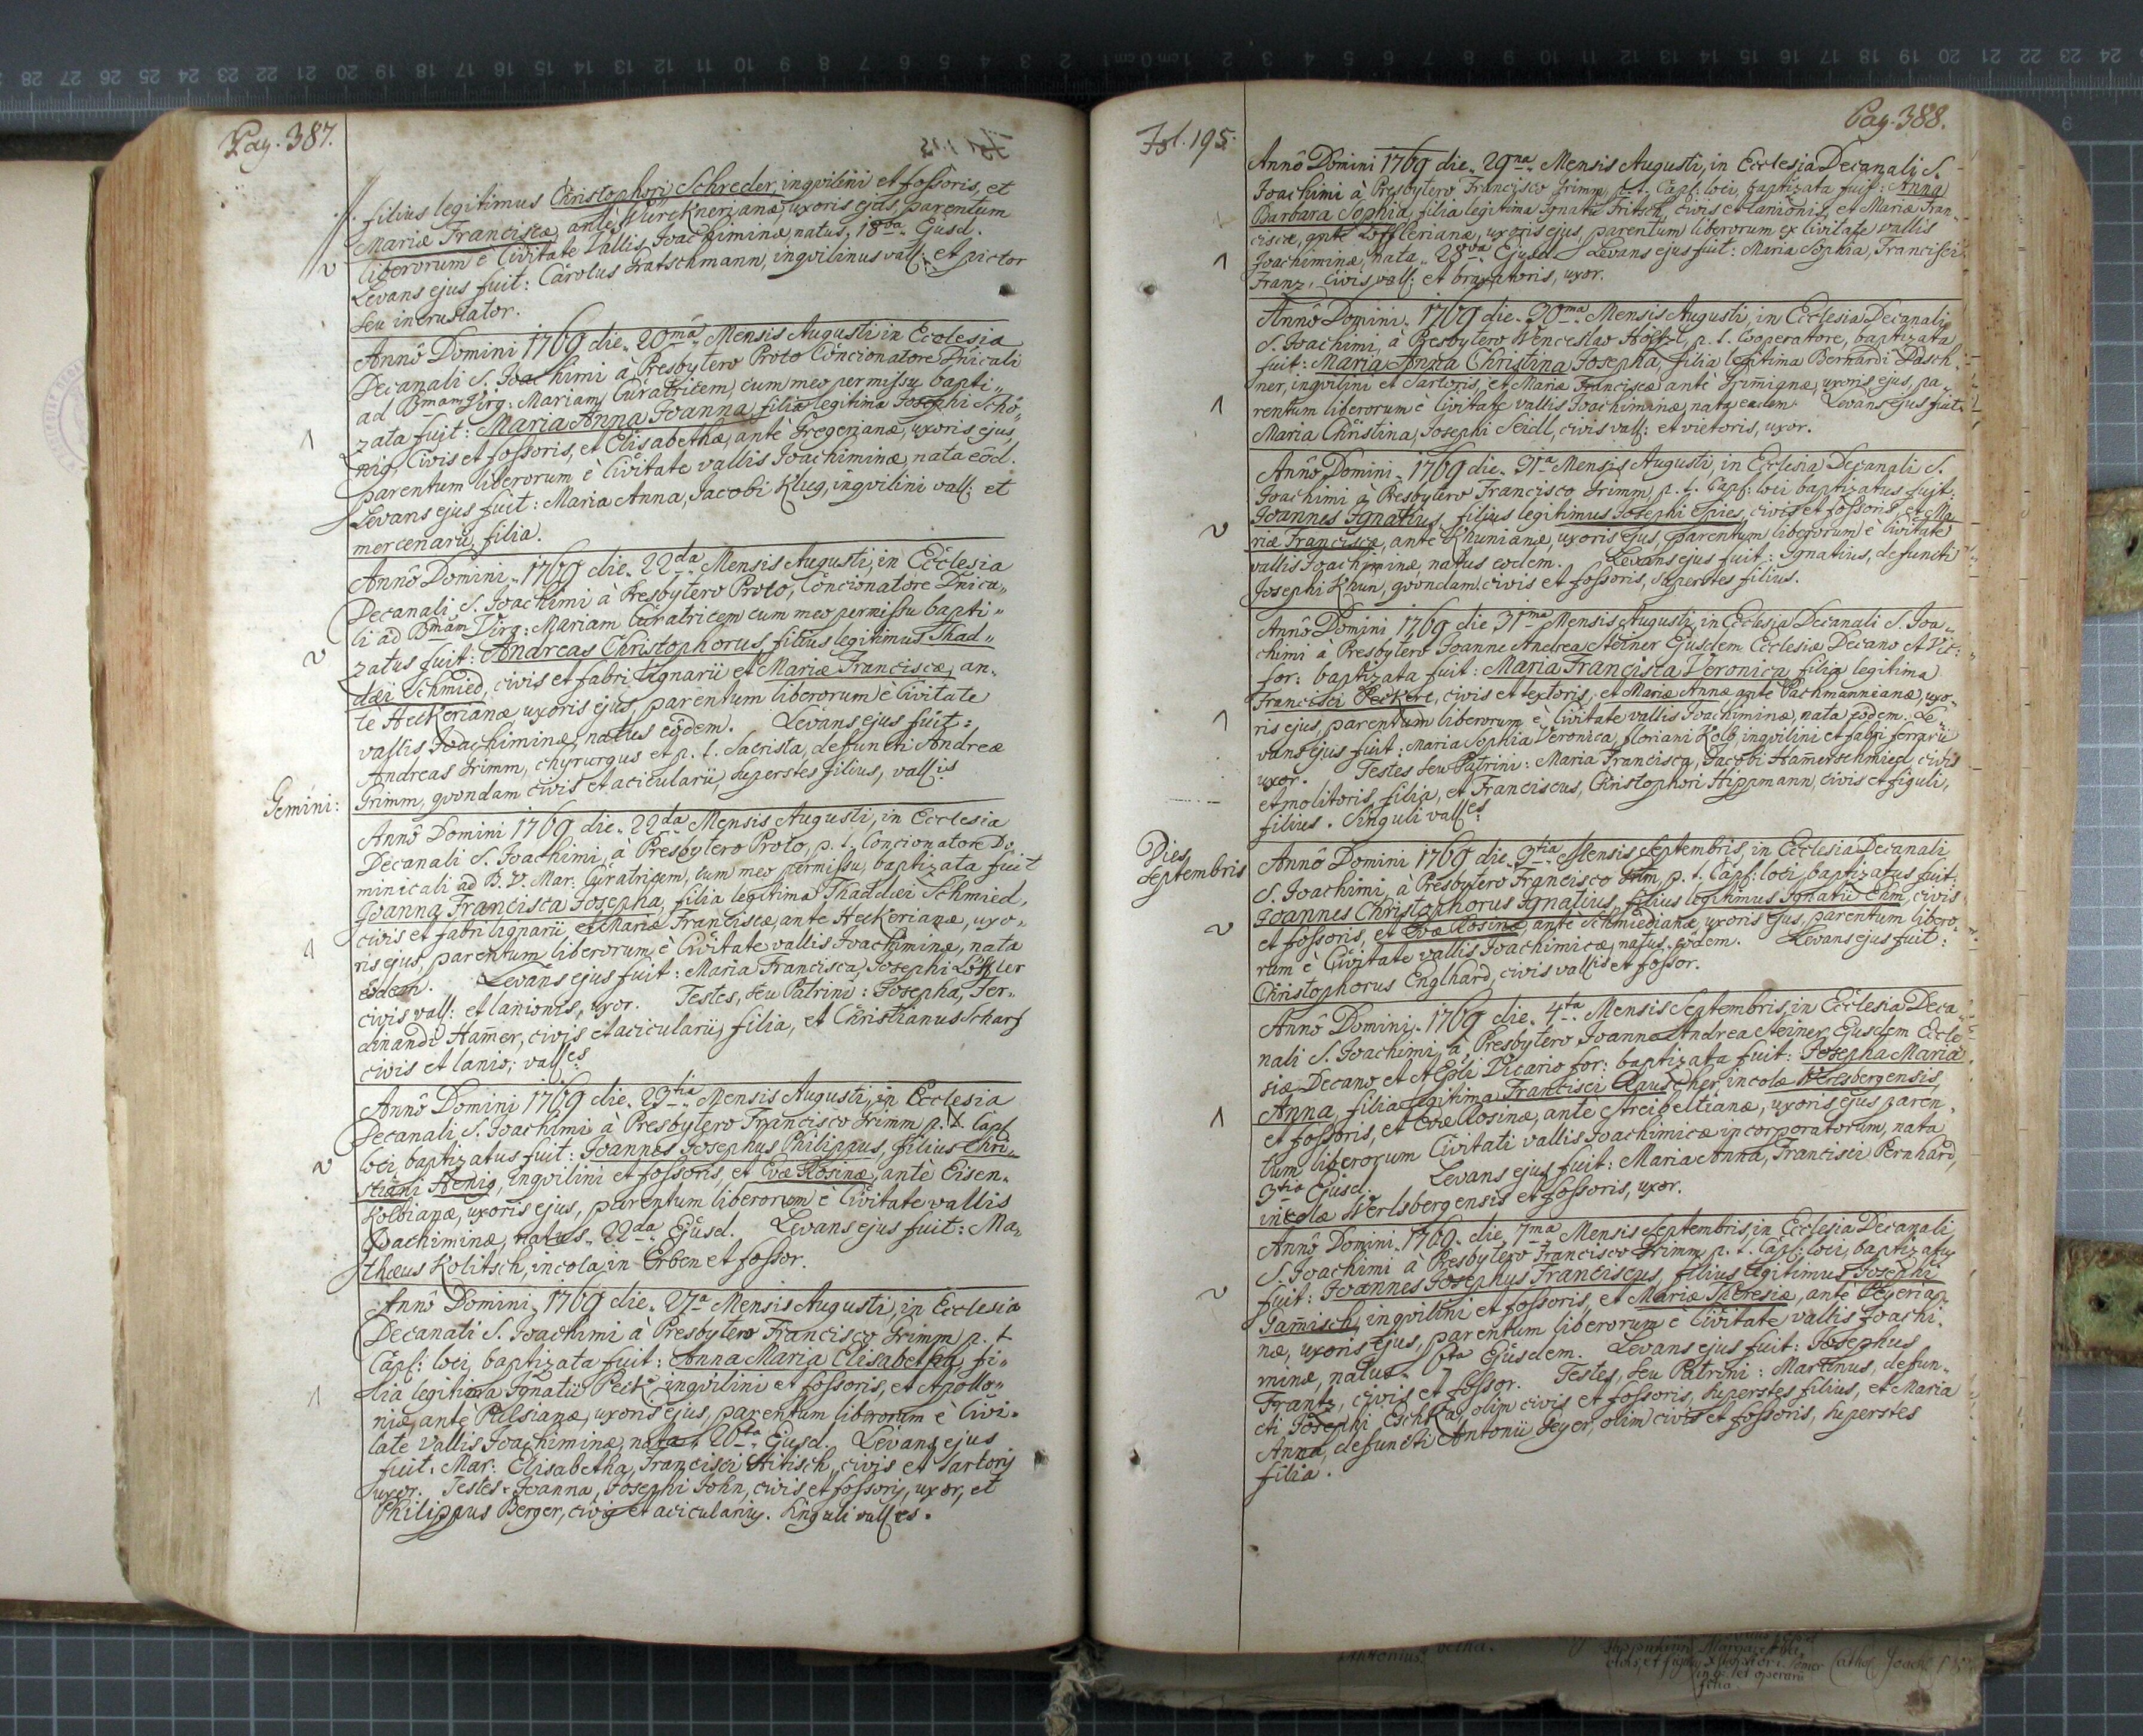 Pag. 387.
filius legitimus Christophori Schreder, inqvilini et fossoris, et
Mariæ Franciscæ, antè Würcknerianæ, uxoris ejus, parentum
liberorum è Civitate Vallis Joachiminæ, natus, 18va Ejusd.
Levans ejus fuit: Carolus Gratschmann, inqvilinus vall: et pictor
seu incrustator.
Annô Domini 1769 die 20ma Mensis Augusti in Ecclesia
Decanali S. Joachimi à Presbytero Proto Concionatore Dnicali
ad Bmam Virg: Mariam Curatricem, cum meo permissu bapti„
zata fuit: Maria Anna Joanna, filia legitima Josephi Schö„
nig, Civis et fossoris, et Elisabethæ, antè Gregerianæ, uxoris ejus,
parentum liberorum è Civitate vallis Joachiminæ, nata eod.
Levans ejus fuit: Maria Anna, Jacobi Klug, inqvilini vall: et
mercenarii, filia.
Annô Domini 1769 die 22da Mensis Augusti, in Ecclesia
Decanali S. Joachimi à Presbytero Proto, Concionatore Dnica„
li ad Bmam Virg: Mariam Curatricem cum meo permissu bapti„
zatus fuit: Andreas Christophorus, filius legitimus Thad„
dæi Schmied, civis et fabri lignarii et Mariæ Franciscæ, an„
te Heckerianæ uxoris ejus, parentum liberorum è Civitate
vallis Joachiminæ, natus eôdem. Levans ejus fuit:
Andreas Grimm, chyrurgus et p. t. Sacrista, defuncti Andreæ
Grimm, qvondam civis et acicularii, superstes filius, vallis
Gemini:
Annô Domini 1769 die 22da Mensis Augusti, in Ecclesia
Decanali S. Joachimi, à Presbytero Proto, p. t. Concionatore Do„
minicali ad B. V. Mar: Curatricem, cum meo permissu, baptizata fuit
Joanna Francisca Josepha, filia legitima Thaddæi Schmied,
civis et fabri lignarii, et Mariæ Franciscæ, ante Heckerianæ, uxo„
ris ejus, parentum liberorum è Civitate vallis Joachiminæ, nata
eôdem. Levans ejus fuit: Maria Francisca, Josephi Löffler
civis vall: et lanionis, uxor. Testes, seu Patrini: Josepha, Fer„
dinandi Hamer, civis et acicularii, filia, et Christianus Scharf
civis et lanio, valles.
Annô Domini 1769 die 23tia Mensis Augusti, in Ecclesia
Decanali S. Joachimi à Presbytero Francisco Grimm p. t. Capl:
loci, baptizatus fuit: Joannes Josephus Philippus, filius Chri„
stiani Henig, Inqvilini et fossoris, et Evæ Rosinæ, antè Eisen„
kolbianæ, uxoris ejus, parentum liberorum è Civitate vallis
Joachiminæ, natus 22da Ejusd. Levans ejus fuit: Ma„
thæus Kolitsch, incola in Erben et fossor.
Annô Domini 1769 die 27a Mensis Augusti, in Ecclesia
Decanali S. Joachimi à Presbytero Francisco Grimm p. t
Capl: loci, baptizata fuit: Anna Maria Elisabetha, fi„
lia legitima Ignatii Peck, inqvilini et fossoris, et Apollo„
niæ, antè Pulsianæ, uxoris ejus, parentum liberorum è Civi„
tate Vallis Joachiminæ, nata 26ta Ejusd. Levans ejus
fuit: Mar: Elisabetha, Francisci Hitisch, civis et Sartoris
uxor. Testes Joanna, Josephi John, civis et fossoris, uxor, et
Philippus Berger, civis et acicularius. Singuli valles.
Fol. 195.
Pag. 388.
Annô Domini 1769 die 29na Mensis Augusti, in Ecclesia Decanali S.
Joachimi à Presbytero Francisco Grimm, p. t. Capl: loci, baptizata fuit: Anna
Barbara Sophia, filia legitima Ignatii Fritsch, civis et lanionis, et Mariæ Fran„
ciscæ, antè Löfflerianæ, uxoris ejus, parentum liberorum ex Civitate vallis
Joachiminæ, nata 28va Ejusd. Levans ejus fuit: Maria Sophia, Francisci
Franz, Civis vall: et braxatoris, uxor.
Annô Domini 1769 die 30ma Mensis Augusti, in Ecclesia Decanali
S. Joachimi, à Presbytero Wenceslao Hölzl, p. t. Cooperatore, baptizata
fuit: Maria Anna Christina Josepha, filia legitima Bernardi Pasch„
ner, inqvilini et Sartoris, et Mariæ Franciscæ antè Grimmianæ, uxoris ejus, pa„
rentum liberorum è Civitate vallis Joachiminæ, nata eadem. Levans ejus fuit
Maria Christina, Josephi Seidl, civis vall: et vietoris, uxor.
Annô Domini 1769 die 31a Mensis Augusti, in Ecclesia Decanali S.
Joachimi à Presbytero Francisco Grimm, p. t. Capl: loci baptizatus fuit:
Joannes Ignatius, filius legitimus Josephi Spies, civis et fossoris, et Ma„
riæ Franciscæ, antè Khunianæ, uxoris ejus, parentum liberorum è Civitate
vallis Joachiminæ, natus eodem. Levans ejus fuit: Ignatius, defuncti
Josephi Khun, qvondam civis et fossoris, superstes filius.
Annô Domini 1769 die 31ma Mensis Augusti, in Ecclesia Decanali S. Joa„
chimi à Presbytero Joanne Andrea Steiner Ejusdem Ecclesiæ Decano et Vic:
for: baptizata fuit: Maria Francisca Veronica, filia legitima
Francisci Peckert, civis et textoris, et Mariæ Annæ ante Pachmannianæ, uxo„
ris ejus, parentum liberorum è Civitate vallis Joachiminæ, nata eôdem. Le„
vans ejus fuit: Maria Sophia Veronica, Floriani Kolb inqvilini et fabri ferrarii
uxor. Testes seu Patrini: Maria Francisca, Jacobi Hamerschmied, civis
et molitoris, filia, et Franciscus, Christophori Hippmann, civis et figuli,
filius. Singuli valles.
Dies
Septembris
Annô Domini 1769 die 3tia Mensis Septembris, in Ecclesia Decanali
S. Joachimi, à Presbytero Francisco Grim, p. t. Capl: loci, baptizatus fuit:
Joannes Christophorus Ignatius, filius legitimus Ignatii Ehm, civis
et fossoris, et Evæ Rosinæ, antè Schmiedianæ, uxoris ejus, parentum libero„
rum è Civitate vallis Joachimicæ, natus eôdem. Levans ejus fuit:
Christophorus Englhard, civis vallis et fossor.
Annô Domini 1769 die 4ta Mensis Septembris, in Ecclesia Deca„
nali S. Joachimi, à Presbytero Joanne Andrea Steiner, Ejusdem Eccle„
siæ Decano et AEpli Vicario for: baptizata fuit: Josepha Maria
Anna, filia legitima Francisci Rauscher, incolæ Werlsbergensis,
et fossoris, et Evæ Rosinæ, antè Streibeltianæ, uxoris ejus paren„
tum liberorum Civitati vallis Joachimicæ incorporatorum, nata
3tia Ejusd. Levans ejus fuit: Maria Anna, Francisci Pernhard,
incolæ Werlsbergensis et fossoris, uxor.
Annô Domini 1769 die 7ma Mensis Septembris, in Ecclesia Decanali
S. Joachimi à Presbytero Francisco Grimm p. t. Capl: loci, baptizatus
fuit: Joannes Josephus Franciscus, filius legitimus Josephi
Gamisch, inqvilini et fossoris, et Mariæ Theresiæ, antè Geyeria„
næ, uxoris ejus, parentum liberorum è Civitate vallis Joachi„
minæ, natus 6ta Ejusdem. Levans ejus fuit: Josephus
Frantz, civis et fossor. Testes, seu Patrini: Martinus, defun„
cti Josephi Eschka, olim civis et fossoris, superstes filius, et Maria
Anna, defuncti Antonii Geyer, olim civis et fossoris, superstes
filia.